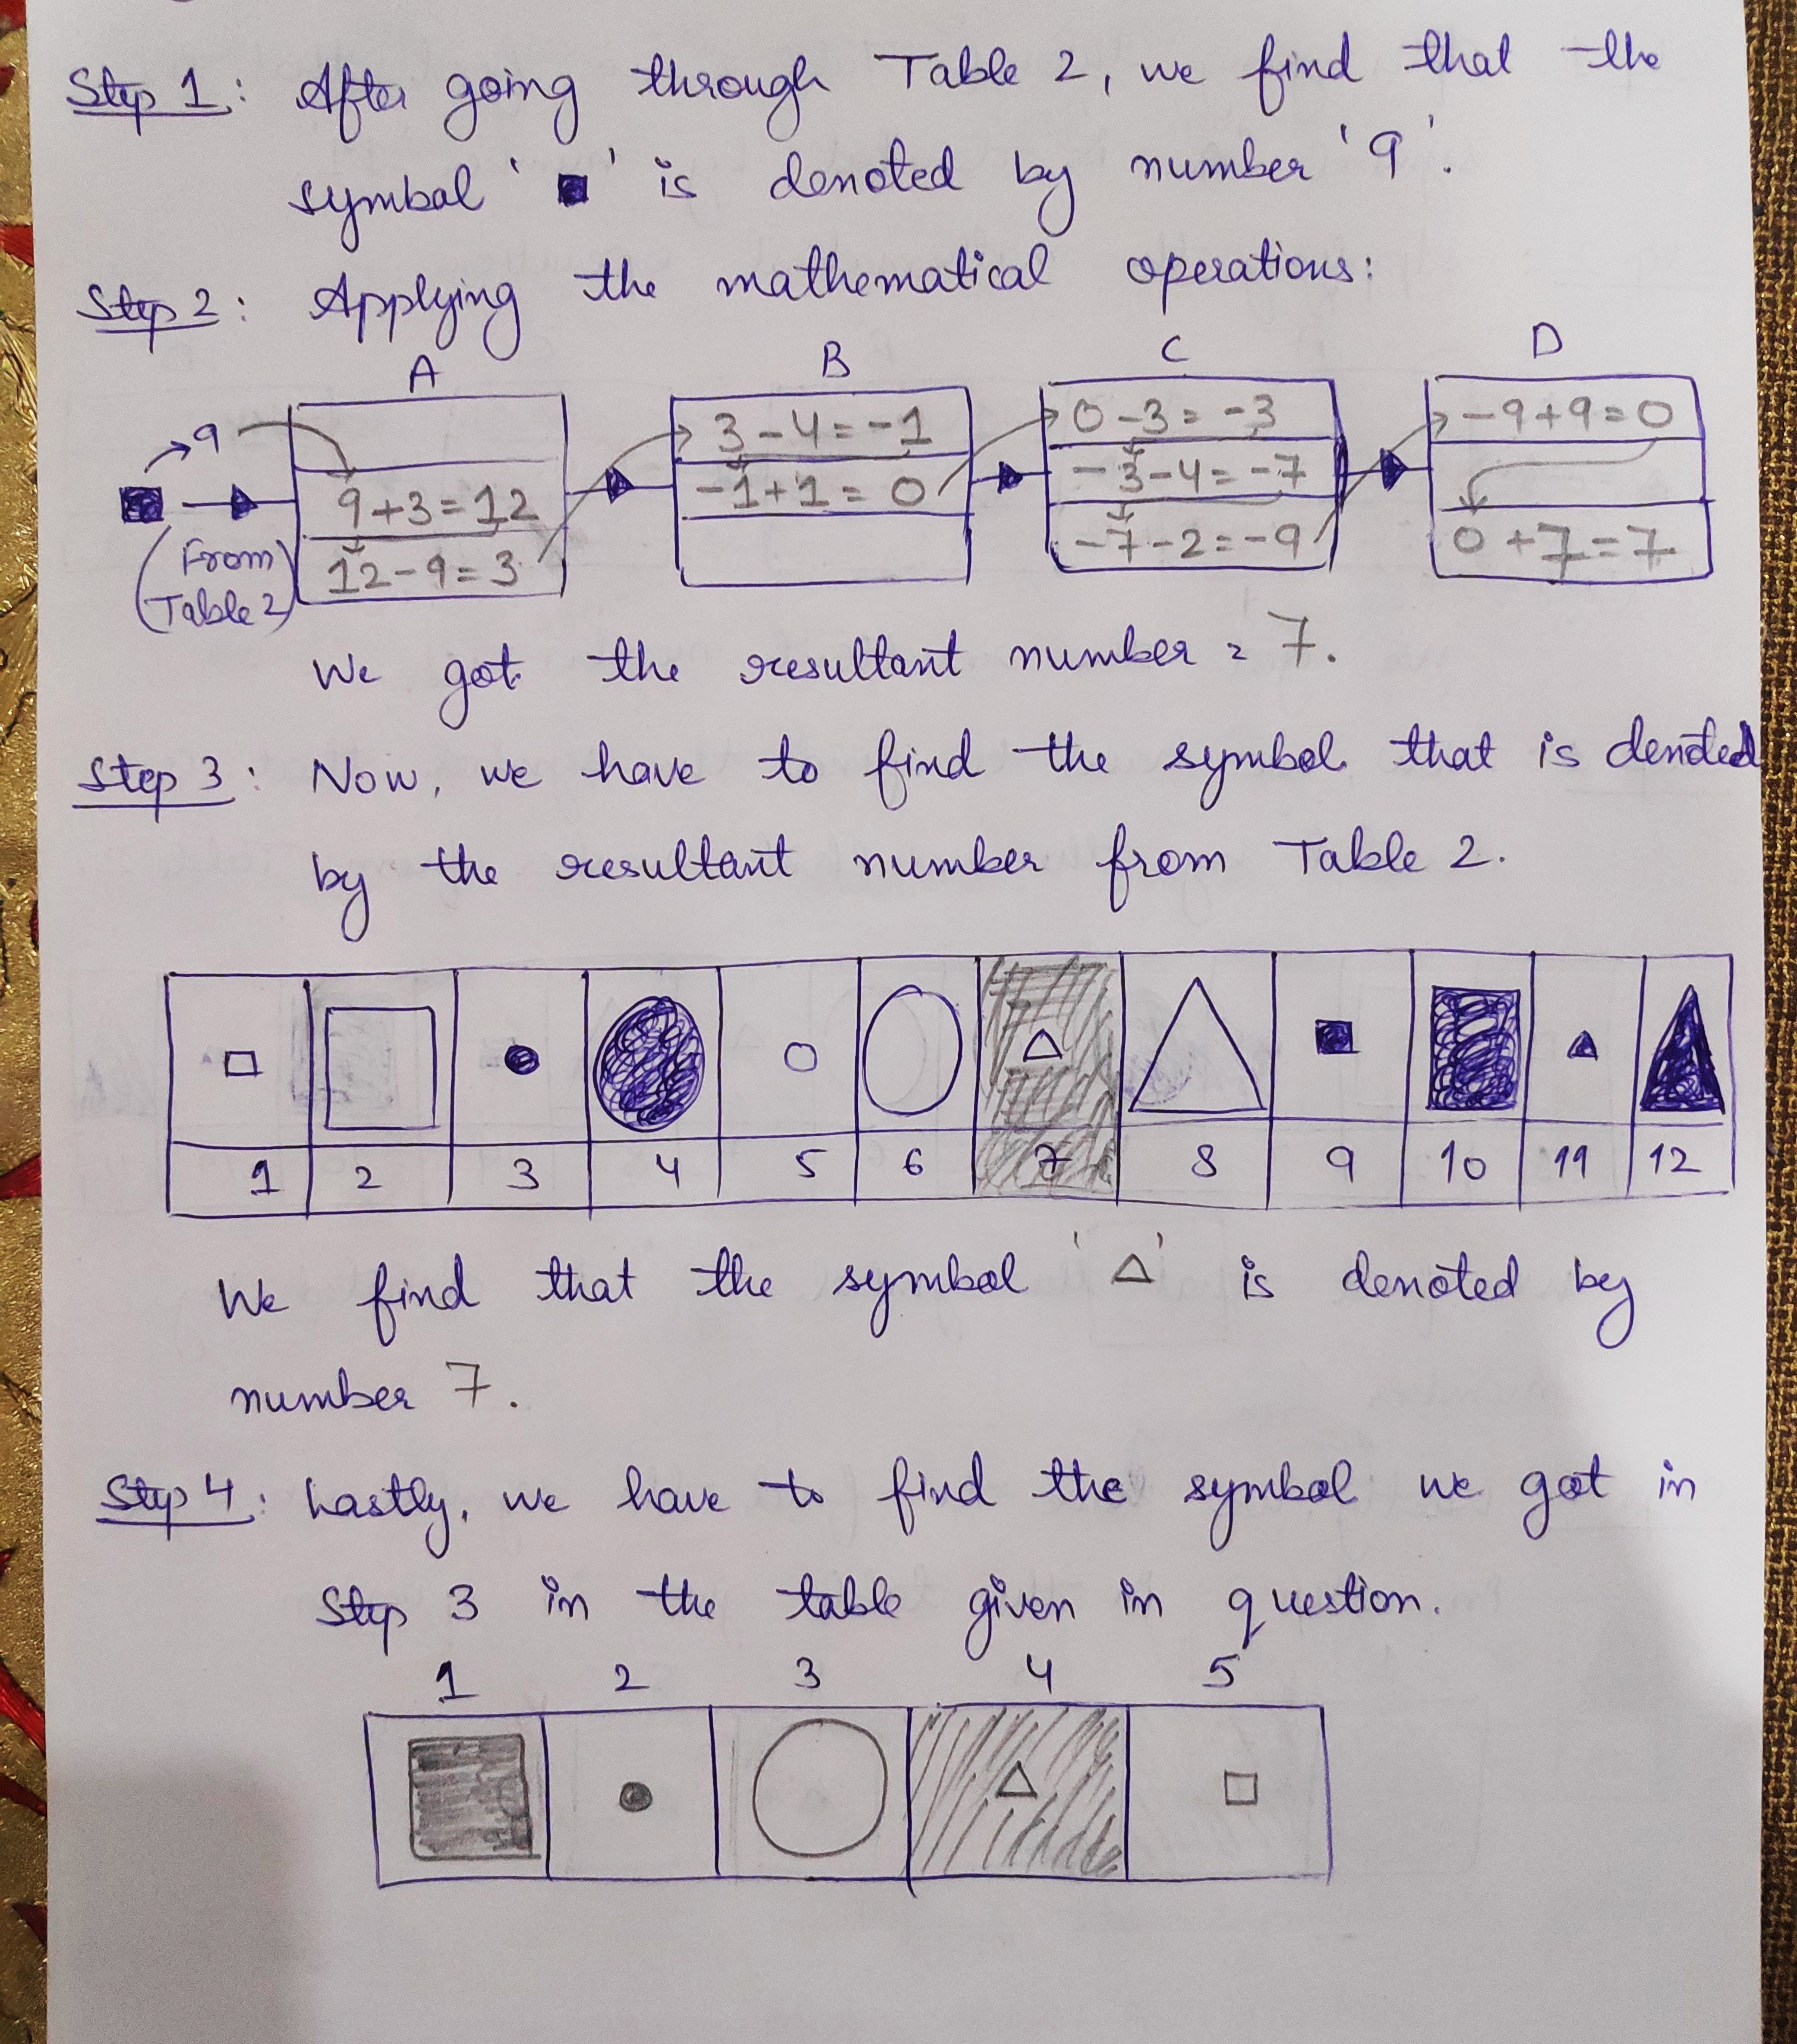 Step 1: After going through Table 2, we find that the
symbol '■' is denoted by number '9'.
Step 2: Applying the mathematical operations:
A B C D
9
9+3=12
12-9=3
(From
Table 2)
3-4=-1
-1+1=0
0-3=-3
-3-4=-7
-7-2=-9
-9+9=0
0+7=7
We got the resultant number = 7.
Step 3: Now, we have to find the symbol that is denoted
by the resultant number from Table 2.
1 2 3 4 5 6 7 8 9 10 11 12
We find that the symbol '△' is denoted by
number 7.
Step 4: Lastly, we have to find the symbol we got in
Step 3 in the table given in question.
1 2 3 4 5